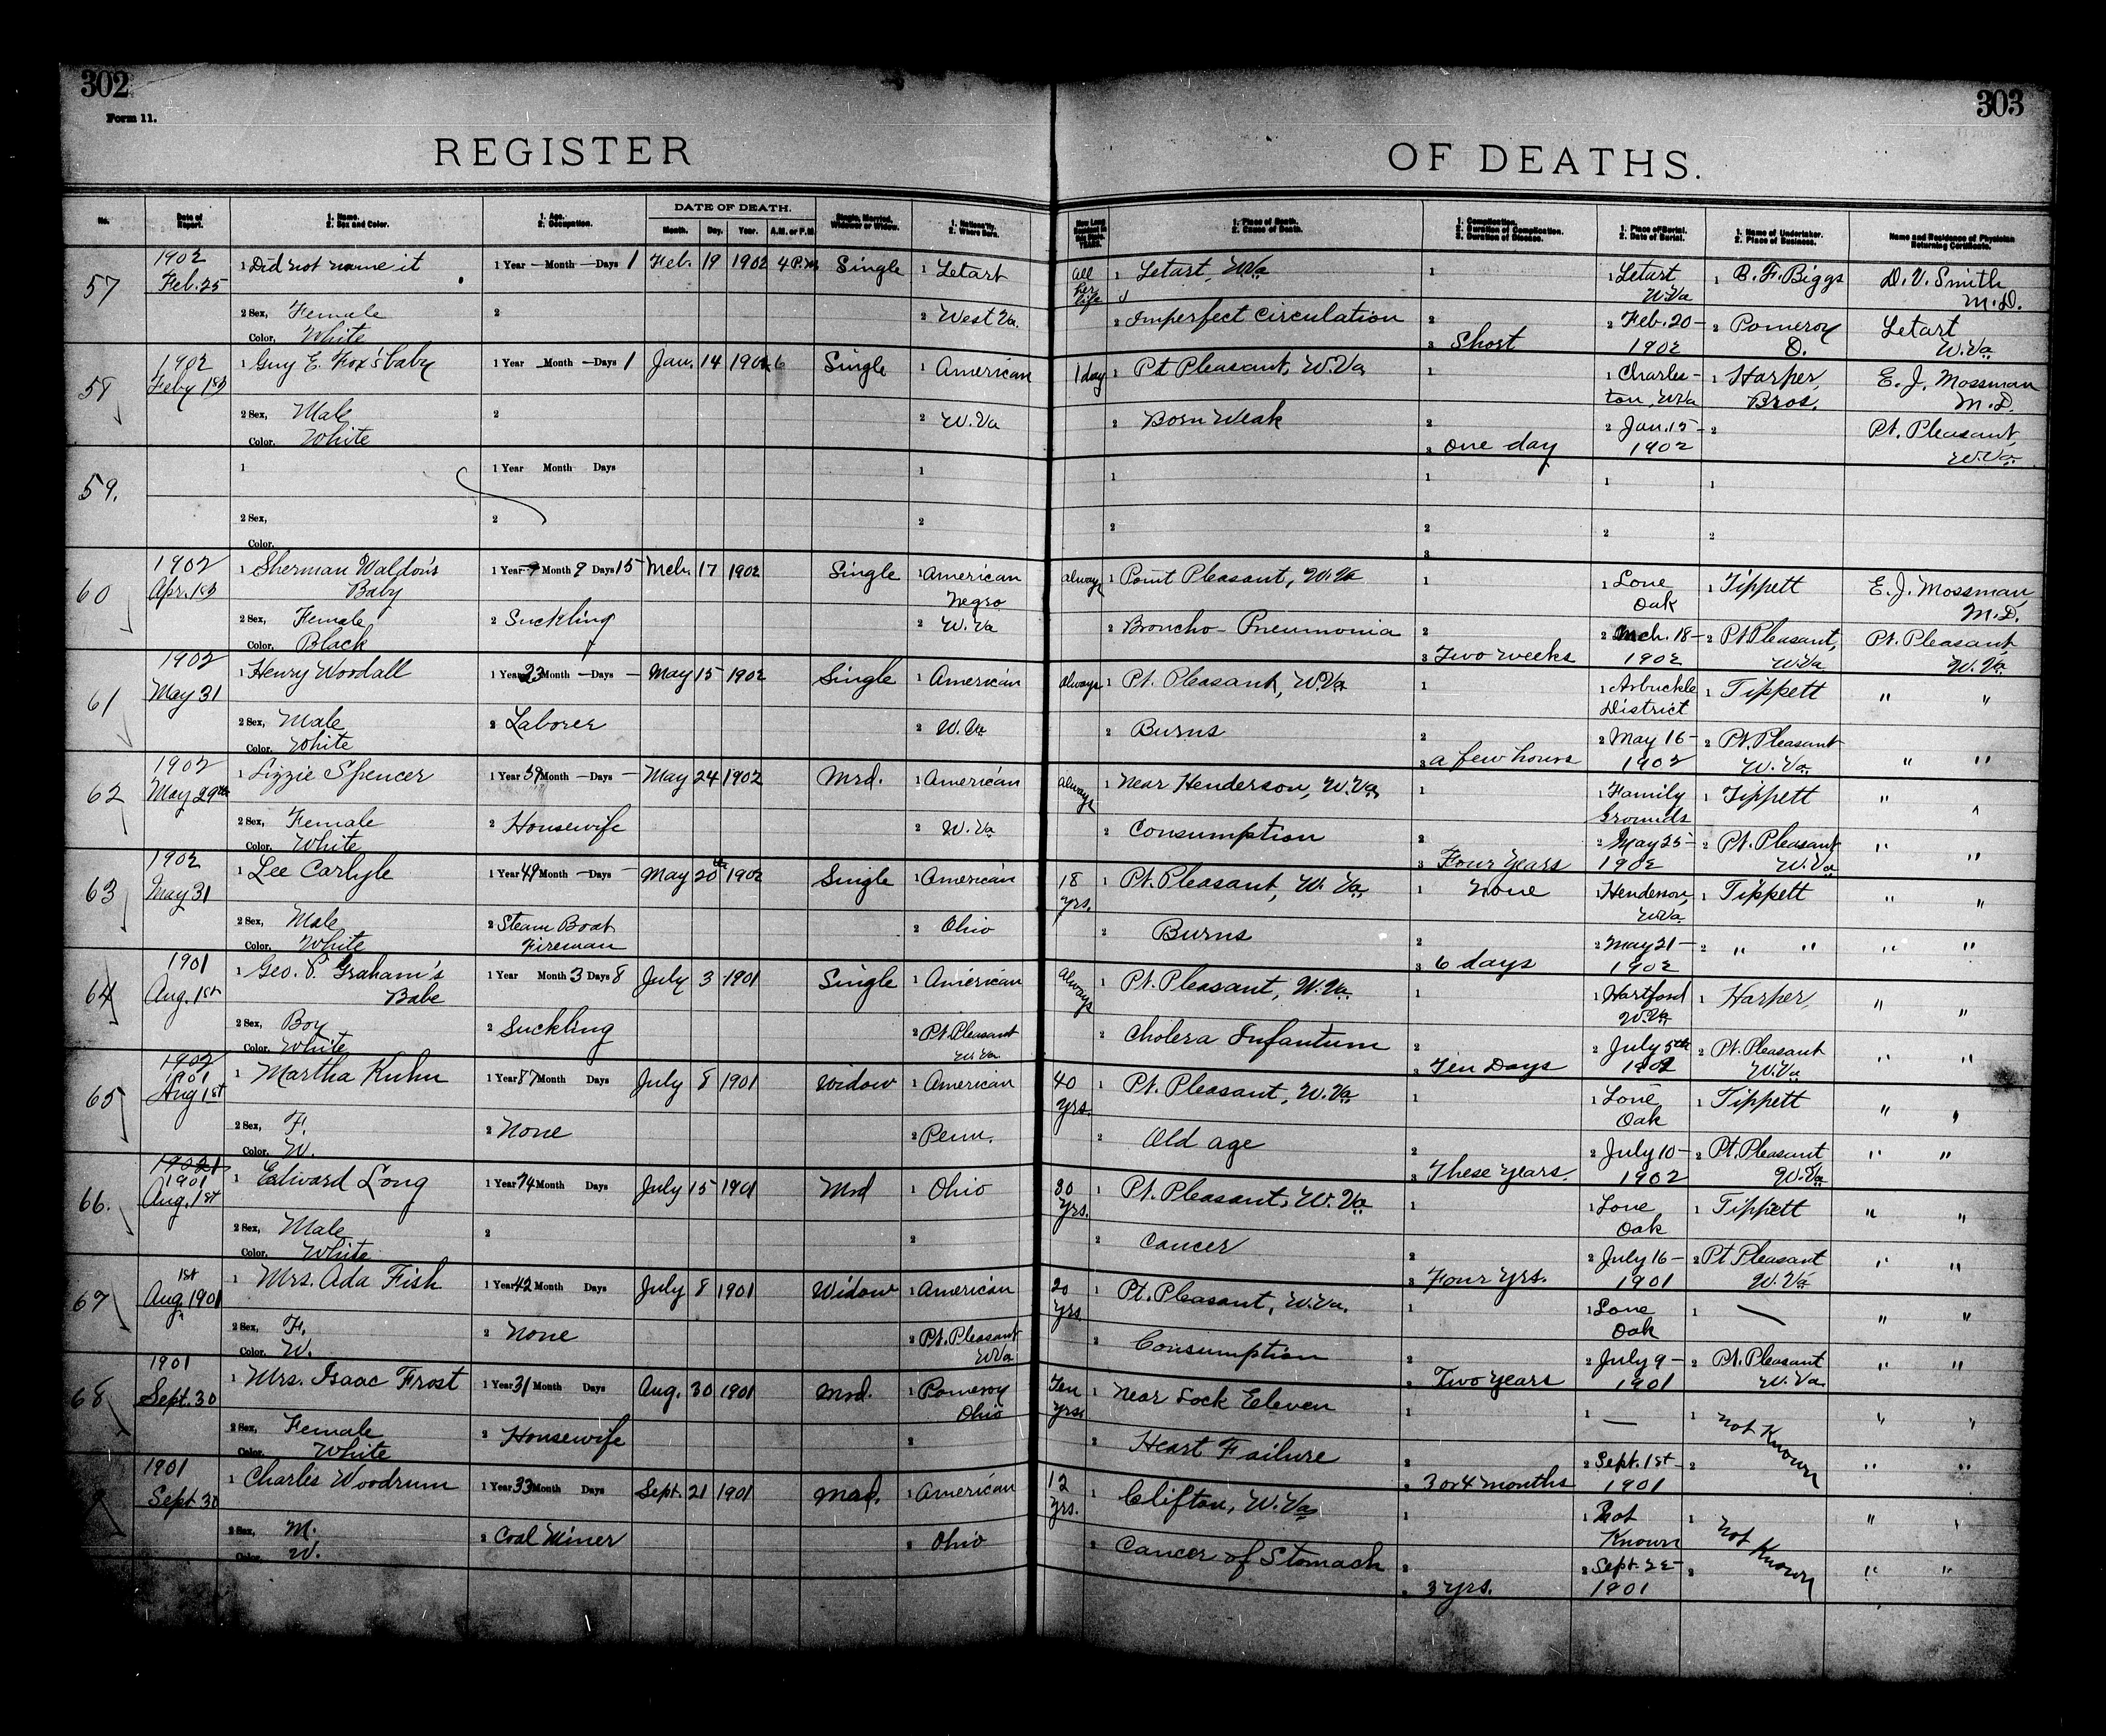 302
303
Form 11.
REGISTER
OF DEATHS.
No.
Date of Report.
1. Name. 2. Sex and Color.
1. Age. 2. Occupation.
DATE OF DEATH.
Month. Day. Year. A.M. or P.M.
Single, Married, Widower or Widow.
1. Nationality. 2. Where Born.
1. Place of Death. 2. Cause of Death.
1. Complication. 2. Duration of Complication. 3. Duration of Disease.
1. Place of Burial. 2. Date of Burial.
1. Name of Undertaker. 2. Place of Business.
Name and Residence of Physician Returning Certificate.
57 1902 Feb. 25 1 Did not name it 1 Year — Month — Days 1 Feb. 19 1902 4 P.M. Single 1 Letart all her life 1 Letart, W.Va 1 1 Letart W.Va 1 B. F. Biggs D. V. Smith M.D.
2 Sex, Female Color, White 2 2 West Va. 2 Imperfect Circulation 2 3 Short 2 Feb. 20 - 1902 2 Pomeroy O. Letart W.Va
58 1902 Feby 1st 1 Guy E. Fox's baby 1 Year — Month — Days 1 Jan. 14 1902 6 Single 1 American 1 day 1 Pt Pleasant, W.Va 1 1 Charles- ton, W.Va 1 Harper Bros. E. J. Mossman M.D.
2 Sex, Male Color, White 2 2 W.Va 2 Born Weak 2 3 One day 2 Jan. 15 - 1902 2 Pt. Pleasant, W.Va.
59. 1 1 Year Month Days 1 1 1 1 1
2 Sex, Color, 2 2 2 2 3 2 2
60 1902 Apr. 1st 1 Sherman Waldon's Baby 1 Year Month 9 Days 15 Mch. 17 1902 Single 1 American Negro always 1 Point Pleasant, W.Va 1 1 Lone Oak 1 Tippett E. J. Mossman, M.D.
2 Sex, Female Color, Black 2 Suckling 2 W.Va 2 Broncho-Pneumonia 2 3 Two weeks 2 Mch. 18 - 1902 2 Pt Pleasant, W.Va Pt. Pleasant, W.Va.
61 1902 May 31 1 Henry Woodall 1 Year 23 Month — Days — May 15 1902 Single 1 American always 1 Pt. Pleasant, W.Va 1 1 Arbuckle District 1 Tippett " "
2 Sex, Male Color, White 2 Laborer 2 W.Va 2 Burns 2 3 a few hours 2 May 16 - 1902 2 Pt. Pleasant W.Va. " "
62 1902 May 29th 1 Lizzie Spencer 1 Year 39 Month — Days — May 24 1902 Mrd. 1 American always 1 Near Henderson, W.Va. 1 1 Family Grounds 1 Tippett " "
2 Sex, Female Color, White 2 Housewife 2 W.Va 2 Consumption 2 3 Four Years 2 May 25 - 1902 2 Pt. Pleasant W.Va " "
63 1902 May 31 1 Lee Carlyle 1 Year 49 Month — Days — May 20th 1902 Single 1 American 18 yrs. 1 Pt. Pleasant, W. Va. 1 None 1 Henderson, W.Va 1 Tippett " "
2 Sex, Male Color, White 2 Steam Boat Fireman 2 Ohio 2 Burns 2 3 6 days 2 May 21 - 1902 2 " " " "
64 1901 Aug. 1st 1 Geo. P. Graham's Babe 1 Year Month 3 Days 8 July 3 1901 Single 1 American always 1 Pt. Pleasant, W.Va. 1 1 Hartford W.Va 1 Harper, " "
2 Sex, Boy Color, White 2 Suckling 2 Pt. Pleasant W.Va 2 Cholera Infantum 2 3 Ten Days 2 July 5th 2 Pt. Pleasant W.Va " "
65 1902 1901 Aug 1st 1 Martha Kuhn 1 Year 87 Month Days July 8 1901 Widow 1 American 40 yrs. 1 Pt. Pleasant, W.Va 1 1 Lone Oak 1 Tippett " "
2 Sex, F. Color, W. 2 None 2 Penn. 2 Old age 2 3 These Years. 2 July 10 - 1902 2 Pt. Pleasant W.Va " "
66. 1901 Aug. 1st 1 Edward Long 1 Year 74 Month Days July 15 1901 Mrd 1 Ohio 30 yrs. 1 Pt. Pleasant, W.Va 1 1 Lone Oak 1 Tippett " "
2 Sex, Male Color, White 2 2 2 Cancer 2 3 Four yrs. 2 July 16 - 1901 2 Pt Pleasant W.Va " "
67 1st Aug. 1901 1 Mrs. Ada Fish 1 Year 42 Month Days July 8 1901 Widow 1 American 20 yrs. 1 Pt. Pleasant, W.Va. 1 1 Lone Oak 1 — " "
2 Sex, F. Color, W. 2 None 2 Pt. Pleasant W.Va 2 Consumption 2 3 Two years 2 July 9 - 1901 2 Pt. Pleasant W.Va " "
68 1901 Sept. 30 1 Mrs. Isaac Frost 1 Year 31 Month Days Aug. 30 1901 Mrd. 1 Pomeroy Ohio Ten yrs. 1 Near Lock Eleven 1 1 — 1 Not Known " "
2 Sex, Female Color, White 2 Housewife 2 2 Heart Failure 2 3 or 4 months 2 Sept. 1st - 1901 2 " "
1901 Sept 30 1 Charles Woodrum 1 Year 33 Month Days Sept. 21 1901 Mrd. 1 American 12 yrs. 1 Clifton, W.Va 1 1 Not Known 1 Not Known " "
2 Sex, M. Color, W. 2 Coal Miner 2 Ohio 2 Cancer of Stomach 2 3 yrs. 2 Sept. 22 - 1901 2 " "